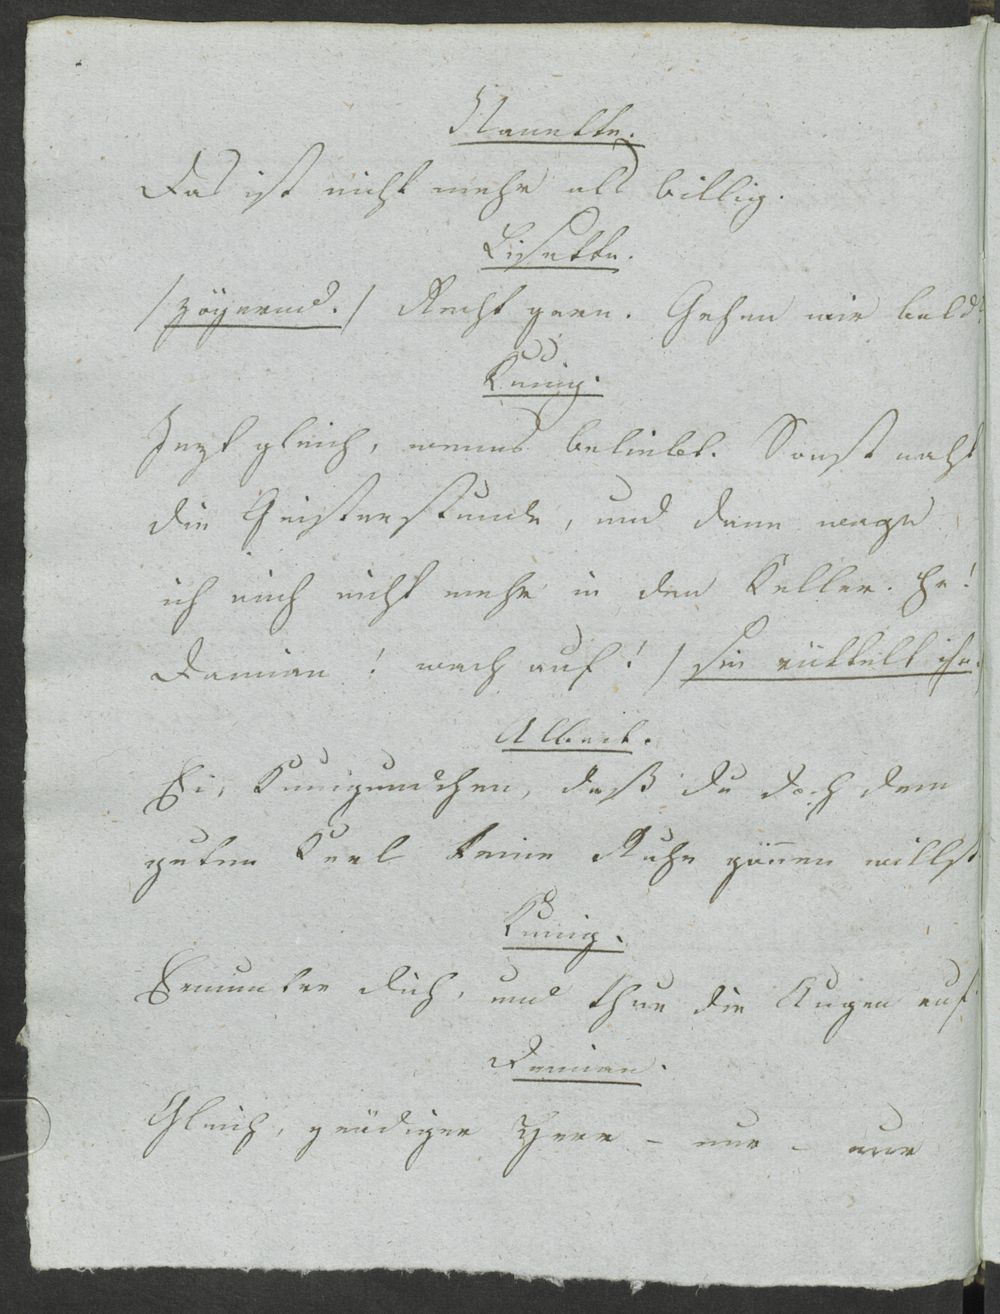 Nanette.
Das ist nicht mehr als billig.
Lisette.
/ zögernd. / Recht gern. Gehen wir bald?
Kunig.
Jezt gleich, wenns beliebt. Sonst naht
die Geisterstunde, und dann wage
ich mich nicht mehr in den Keller. He!
Damian! wach auf! / sie rüttelt ihn.
Albert.
Ei, Kunigundchen, daß du doch dem
guten Kerl keine Ruhe gönnen willst
Kunig.
Ermuntre dich, und thue die Augen auf.
Damian.
Gleich, gnädiger Herr – nur – nur